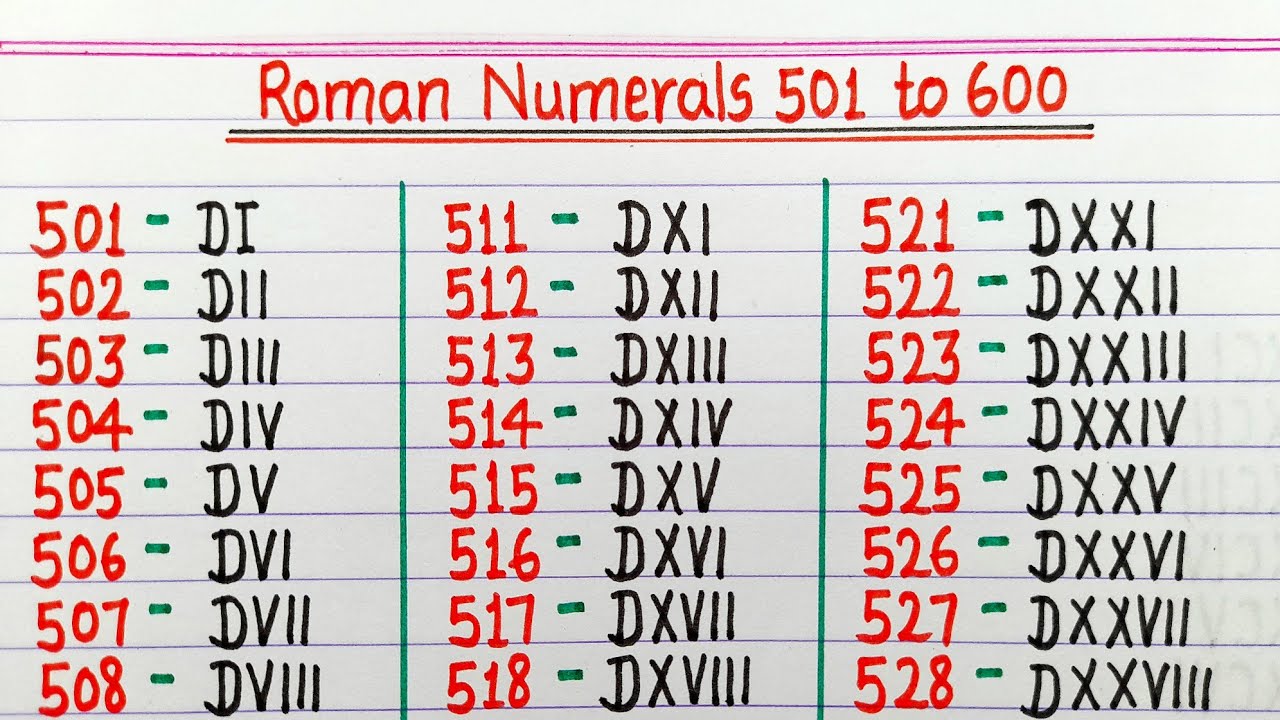 Roman Numerals 501 to 600
501 - DI
502 - DII
503 - DIII
504 - DIV
505 - DV
506 - DVI
507 - DVII
508 - DVIII
511 - DXI
512 - DXII
513 - DXIII
514 - DXIV
515 - DXV
516 - DXVI
517 - DXVII
518 - DXVIII
521 - DXXI
522 - DXXII
523 - DXXIII
524 - DXXIV
525 - DXXV
526 - DXXVI
527 - DXXVII
528 - DXXVIII